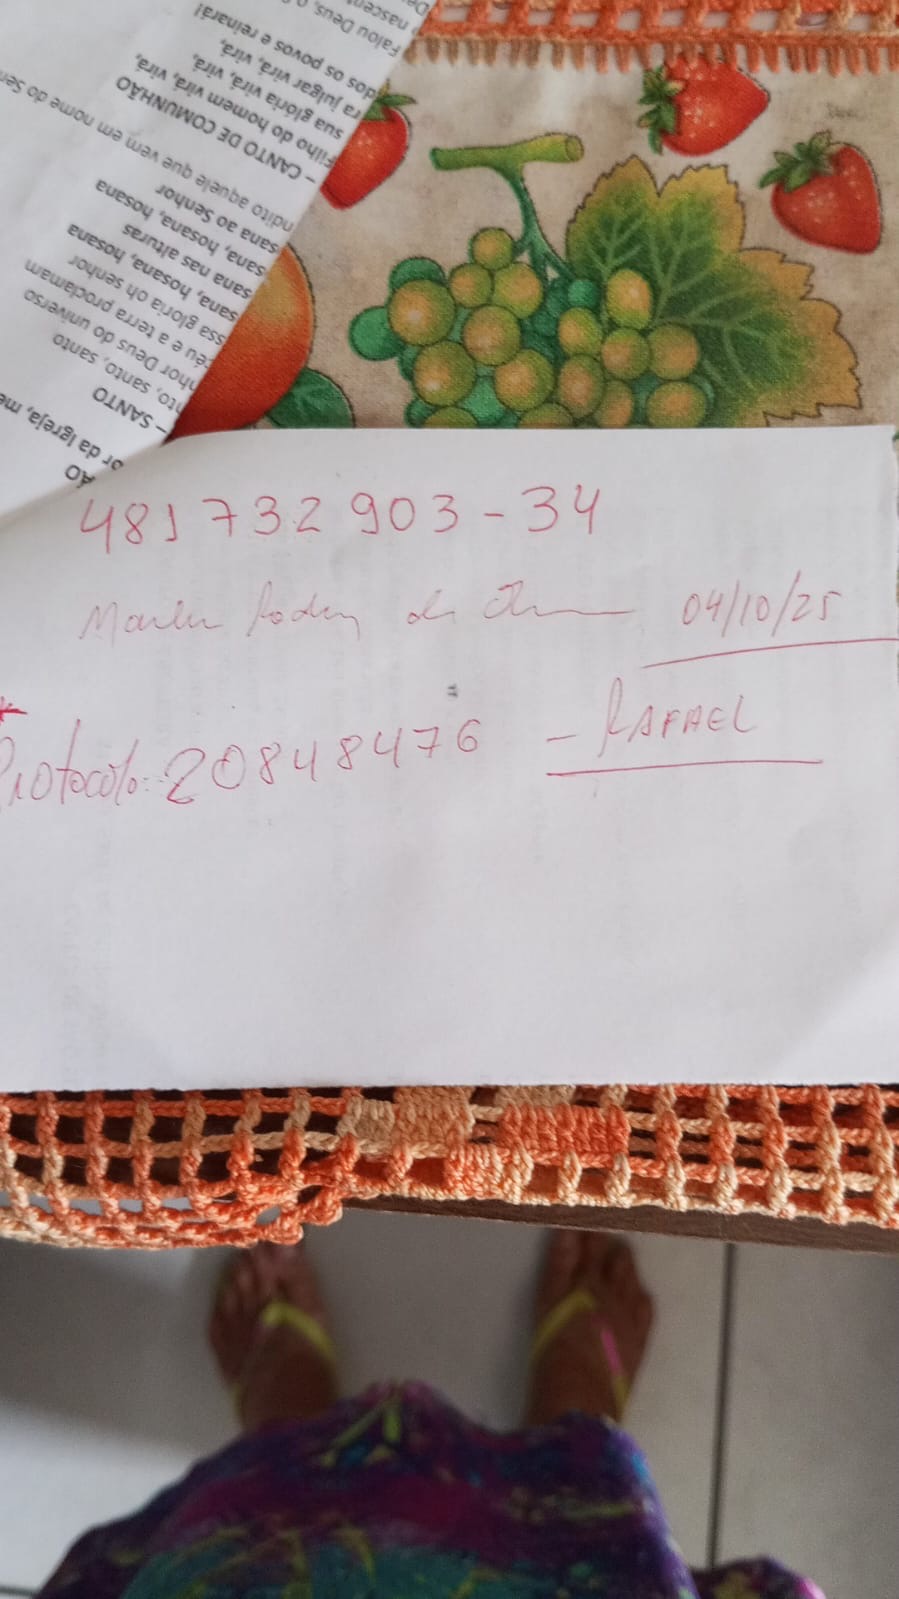 481 732 903-34
04/10/25
Protocolo: 20848476 - RAFAEL
or da Igreja, me
– SANTO
nto, santo, santo
nhor Deus do universo
céu e a terra proclamam
ssa glória oh senhor
sana, hosana, hosana
sana nas alturas
sana, hosana, hosana
sana ao Senhor
ndito aquele que vem em nome do Sen
– CANTO DE COMUNHÃO
Filho do homem virá, virá,
sua glória virá, virá
ra julgar virá, virá,
dos os povos e reinará!
Falou Deus, o
nascent